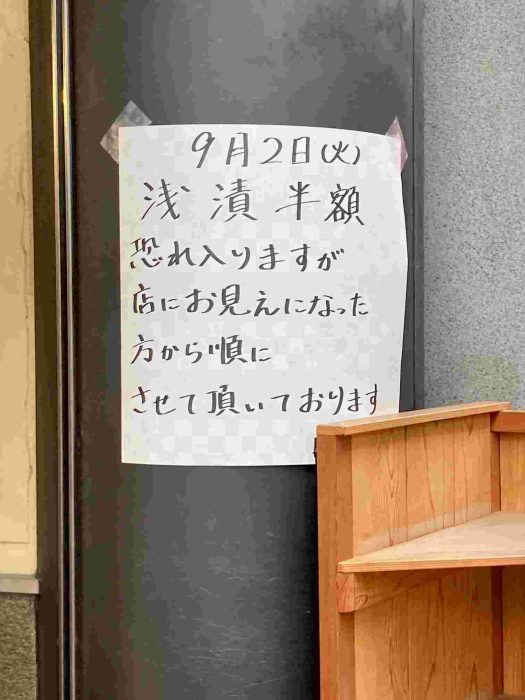 9月2日(火)
浅漬半額
恐れ入りますが
店にお見えになった
方から順に
させて頂いております